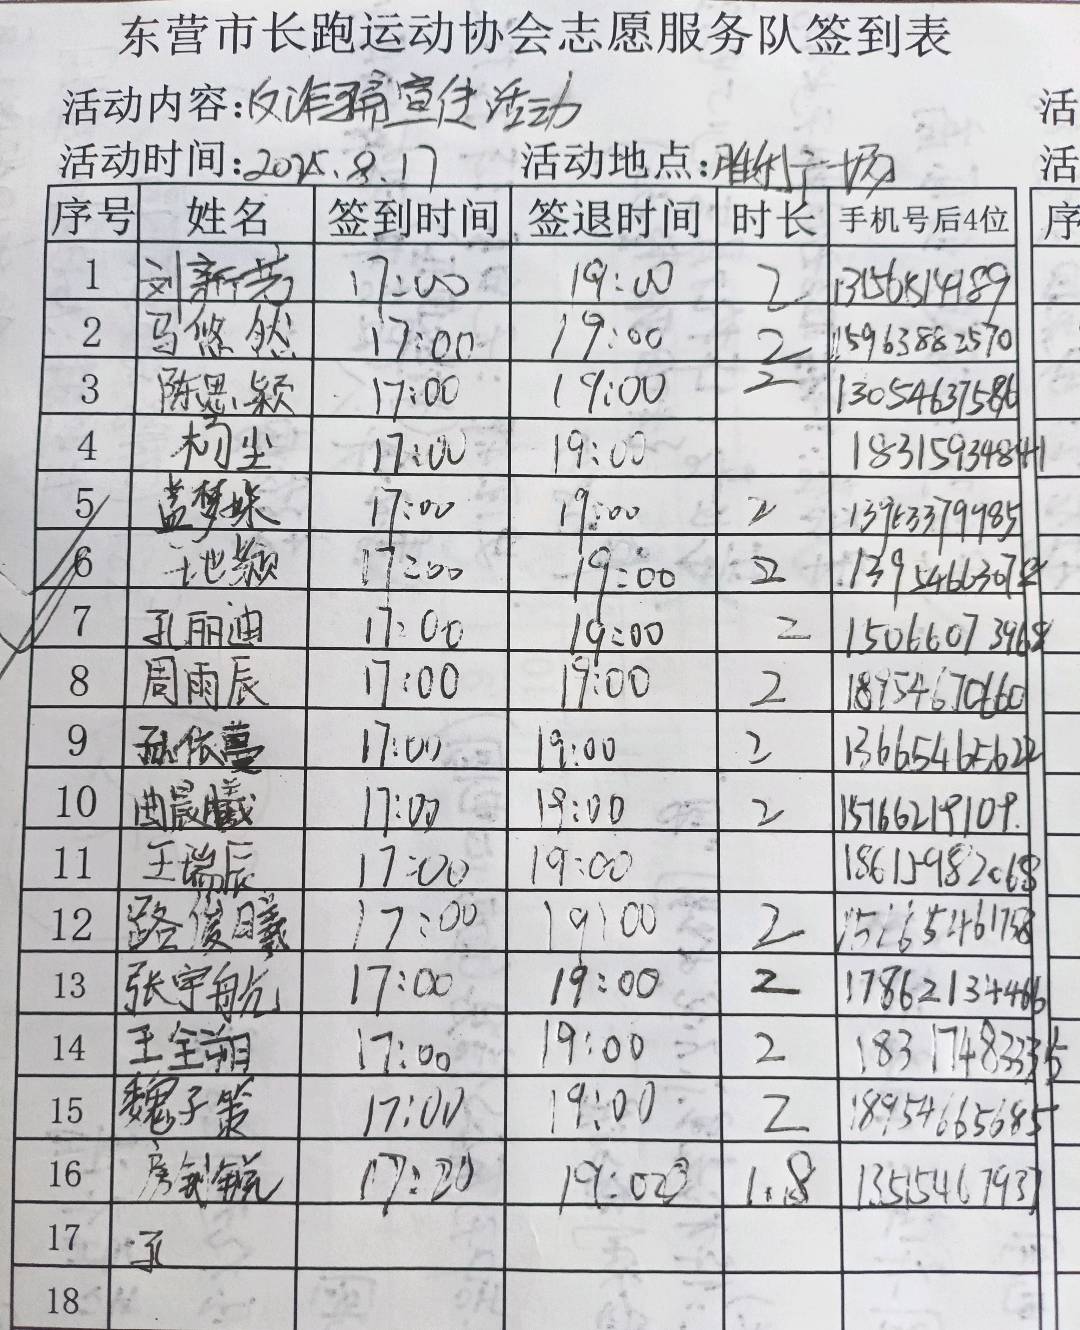 东营市长跑运动协会志愿服务队签到表
活动内容:反诈骗宣传活动
活动时间:2025.8.17 活动地点:胜利广场
序号 姓名 签到时间 签退时间 时长 手机号后4位
1 刘新芳 17:00 19:00 2
2 马悠然 17:00 19:00 2 15963882570
3 陈思颖 17:00 19:00 2 13054637586
4 杨尘 17:00 19:00 18315934841
5 蓝梦珠 17:00 19:00 2
6 17:00 19:00 2
7 孔丽迪 17:00 19:00 2 15066073968
8 周雨辰 17:00 19:00 2 18954670660
9 孙依蔓 17:00 19:00 2
10 曲晨曦 17:00 19:00 2 15766219109
11 王瑞辰 17:00 19:00 18615982068
12 路俊曦 17:00 19:00 2 152665461758
13 张宇航 17:00 19:00 2 17862134466
14 王全朔 17:00 19:00 2 18317483335
15 魏子策 17:00 19:00 2 18954665685
16 房钊锐 17:20 19:00 1.8 13515467937
17 孔
18
活
活
序